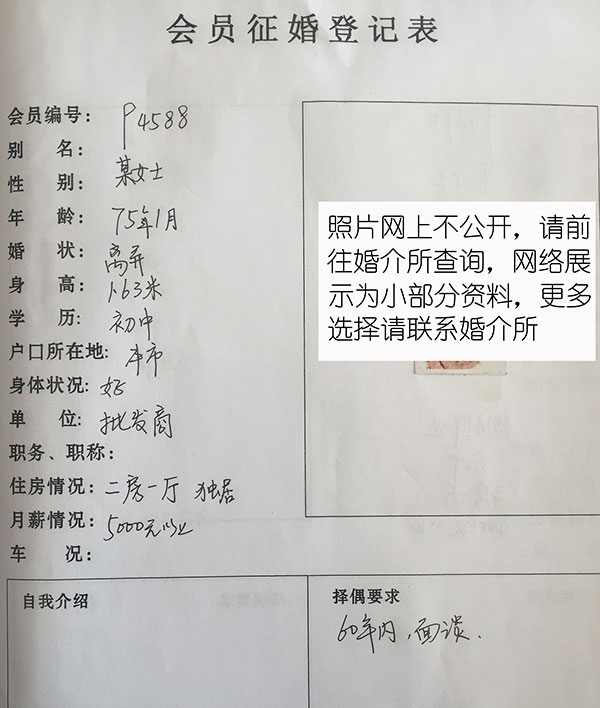 会员征婚登记表
会员编号： P4588
别 名：
性 别： 某女士
年 龄： 75年1月
婚 状： 离异
身 高： 1.63米
学 历： 初中
户口所在地： 本市
身体状况： 好
单 位： 批发商
职务、职称：
住房情况： 二房一厅 独居
月薪情况： 5000元以上
车 况：
照片网上不公开，请前
往婚介所查询，网络展
示为小部分资料，更多
选择请联系婚介所
自我介绍
择偶要求
60年内，面谈.